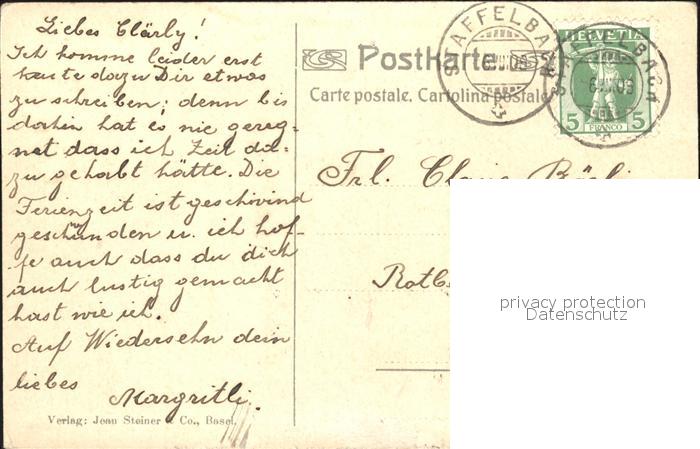 Liebes Clärly!
Ich komme leider erst
heute dazu Dir etwas
zu schreiben; denn bis
dahin hat es nie gereg-
net dass ich Zeit da-
zu gehabt hätte. Die
Ferienzeit ist geschwind
geschwunden u. ich hof-
fe auch dass du dich
auch lustig gemacht
hast wie ich.
Auf Wiedersehn dein
liebes
Margritli.
Verlag: Jean Steiner & Co., Basel.
Postkarte
Carte postale. Cartolina postale
STAFFELBACH
STAFFELBACH
HELVETIA
5 FRANCO 5
Frl.
privacy protection
Datenschutz